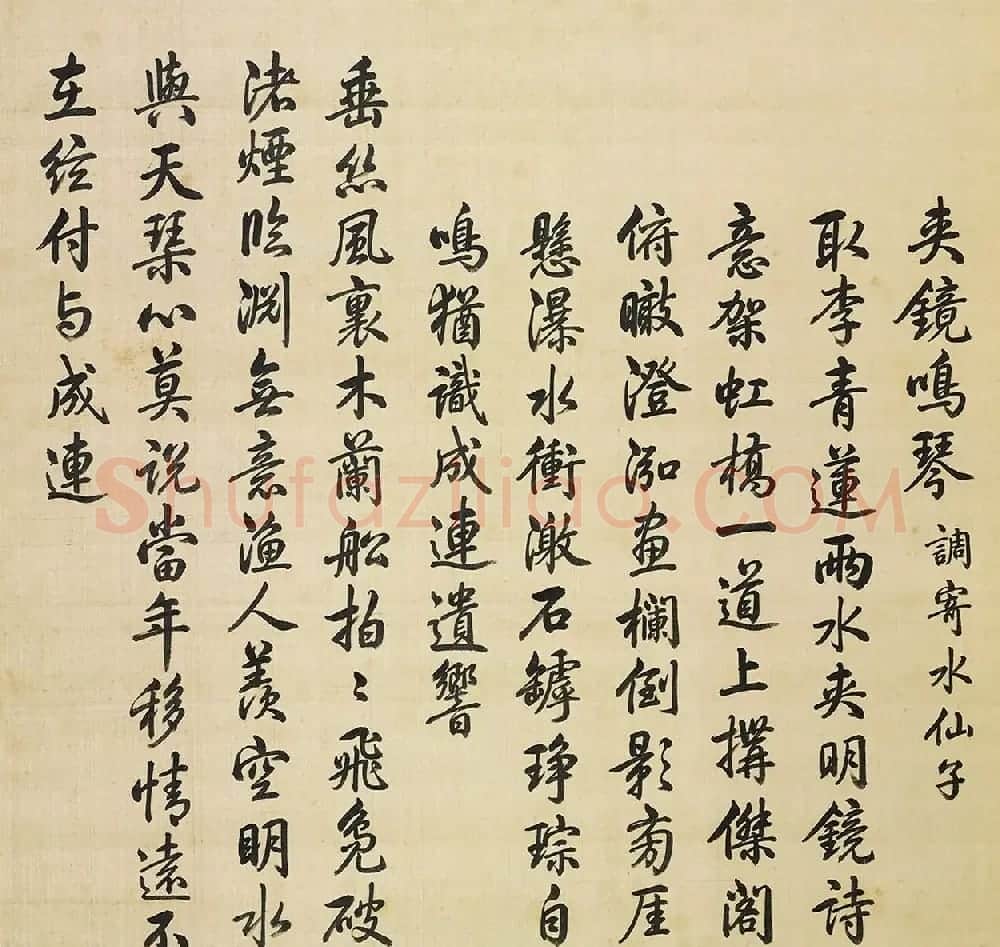 夾鏡鳴琴 調寄水仙子
取李青蓮兩水夾明鏡詩
意架虹橋一道上搆傑閣
俯瞰澄泓畫欄倒影旁厓
懸瀑水衝激石罅琤琮自
鳴猶識成連遺響
垂絲風裏木蘭船拍〻飛鳧破
渚煙臨淵無意漁人羨空明水
與天琹心莫說當年移情遠不
在絃付與成連
Shufaziliao.COM